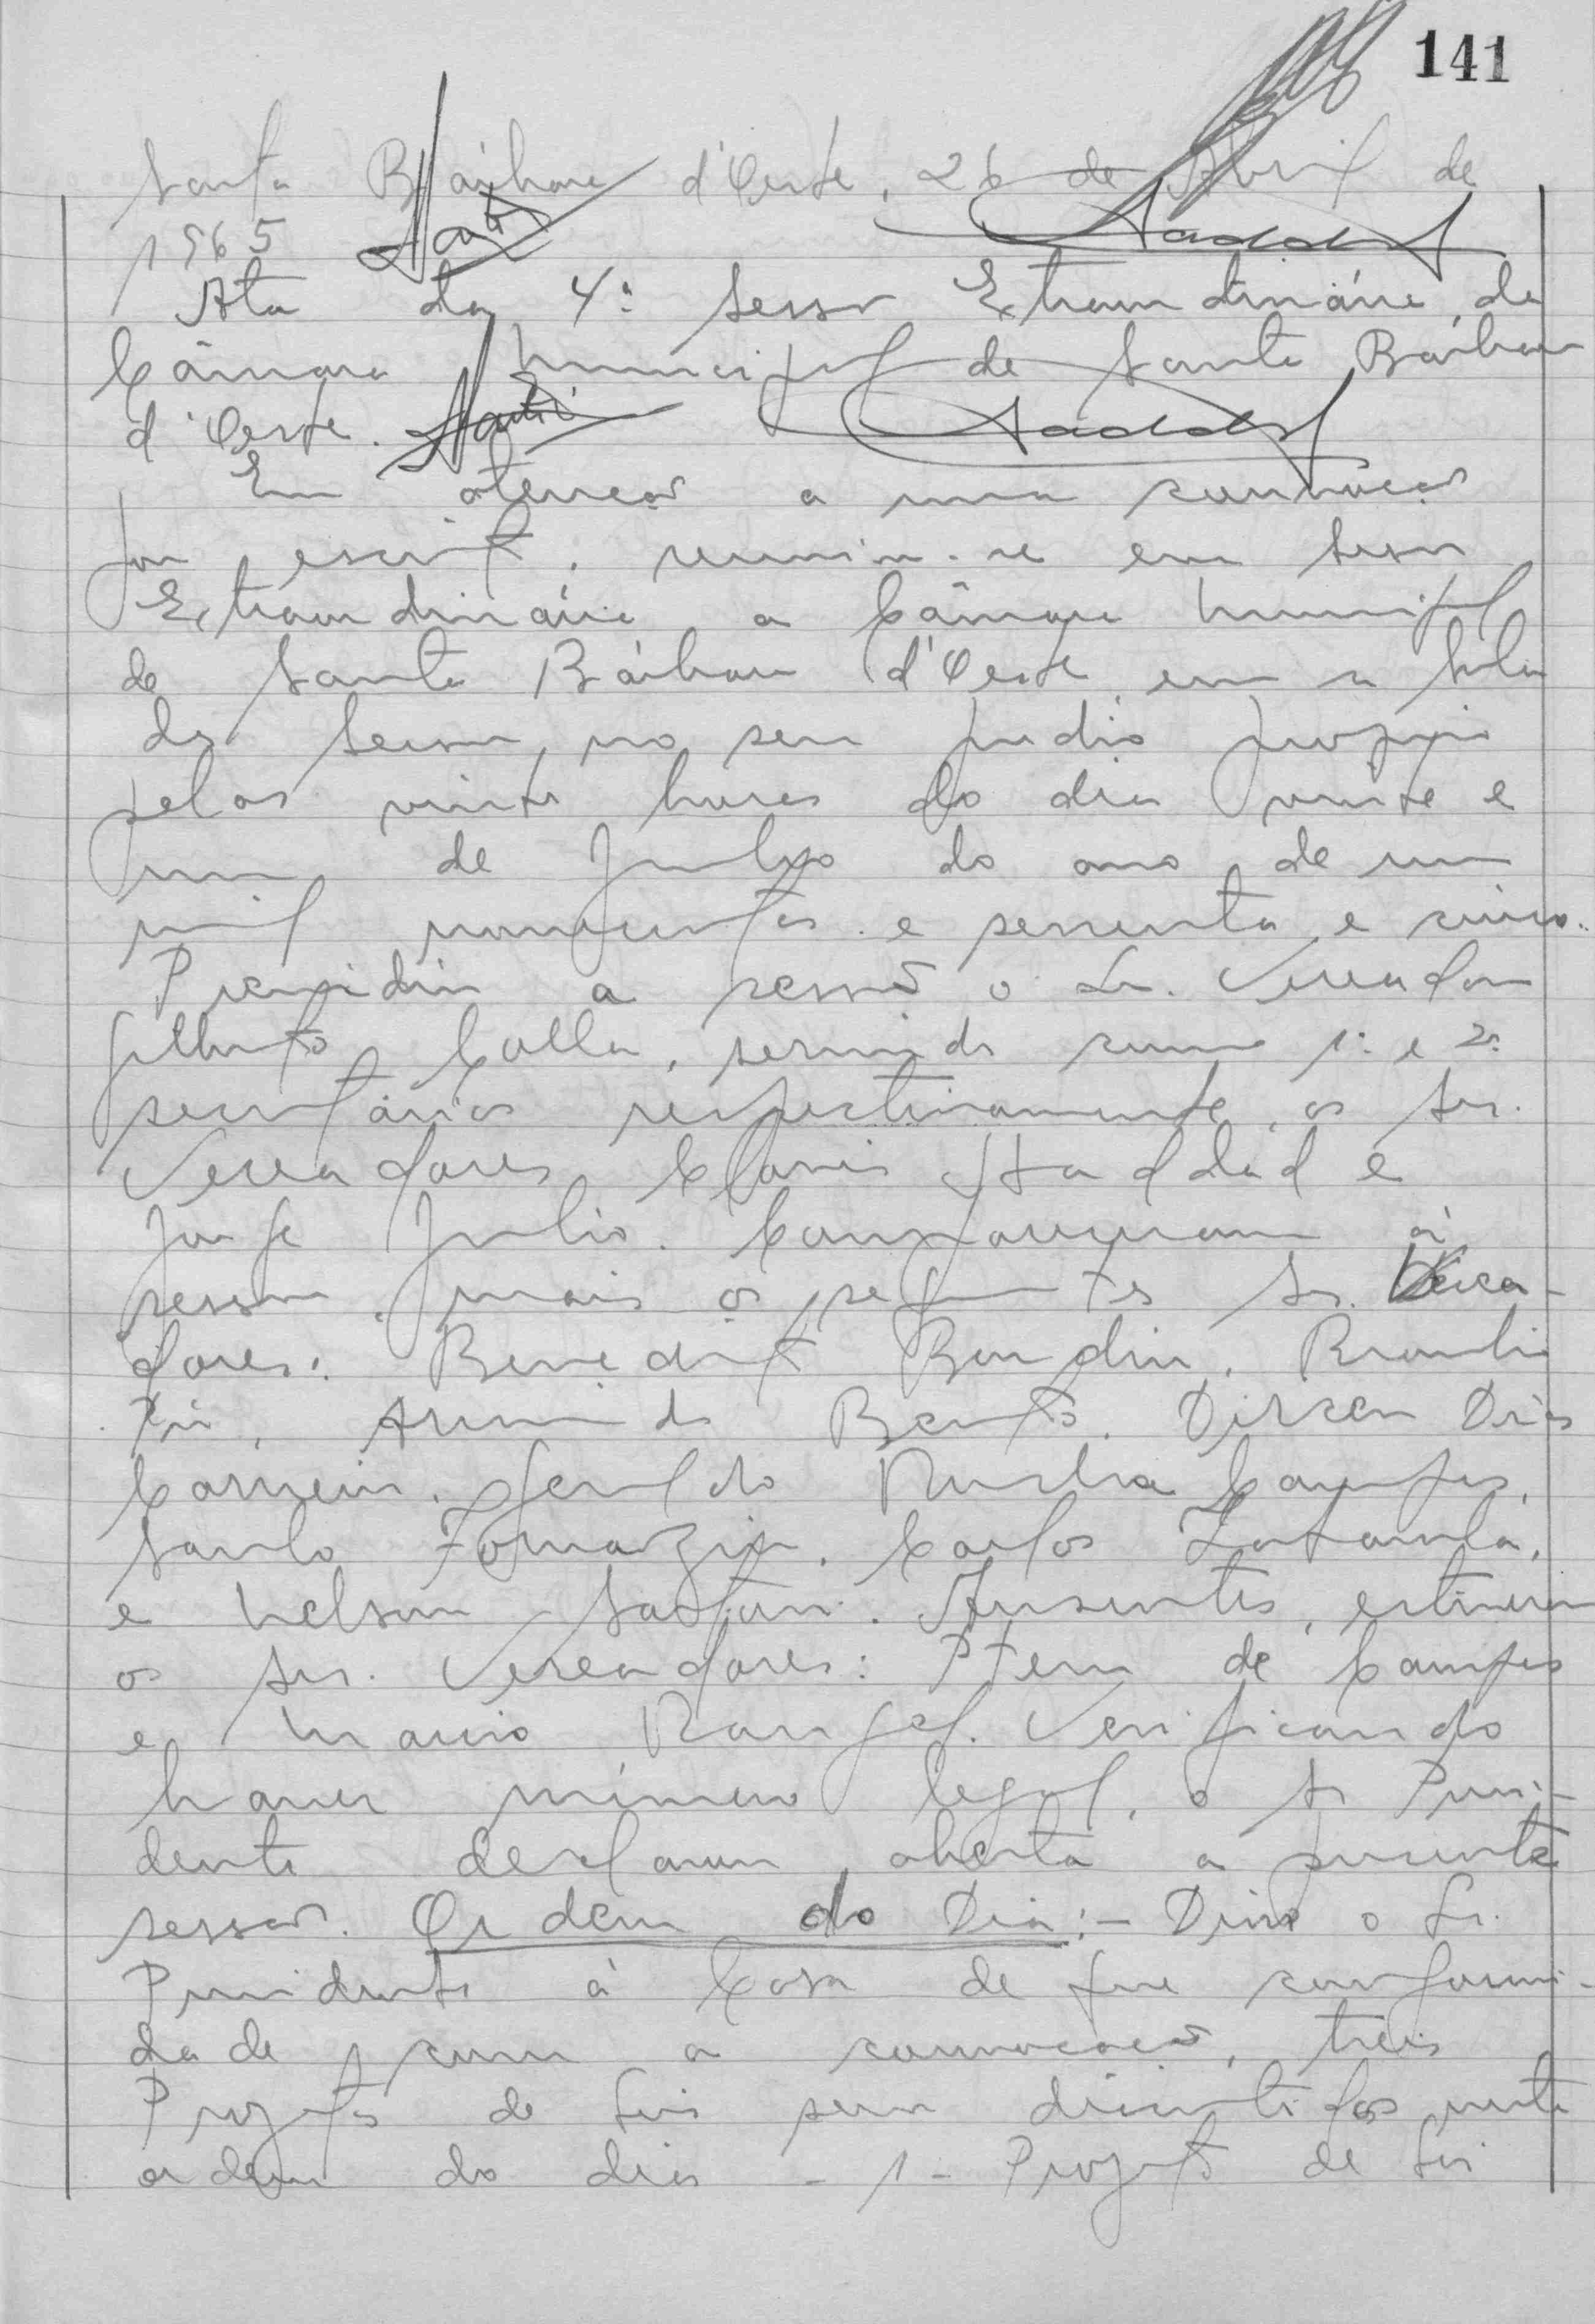 141
Santa Bárbara d'Oeste, 26 de Abril de
1965
Ata da 4ª sessão Extraordinária da
Câmara Municipal de Santa Bárbara
d'Oeste. Haddad
Em atenção a uma convocação
por escrito, reuniu-se em sessão
Extraordinária a Câmara Municipal
de Santa Bárbara d'Oeste, em a Sala
das Sessões, no seu prédio próprio
pelas vinte horas do dia vinte e
um de Julho do ano de um
mil novecentos e sessenta e cinco.
Presidiu a sessão o Sr. Vereador
Gilberto Colla, servindo como 1º e 2º
secretários respectivamente, os Srs.
Vereadores Clovis Haddad e
Jorge Julio. Compareceram à
sessão mais os seguintes Srs. Verea-
dores: Benedito Brandin, Braulio
Pio, Armindo Bento, Dirceu Dias
Carneiro, Geraldo Rocha Campos,
Santo Fomazin, Carlos
e Nelson. Ausentes, estiveram
os Srs. Vereadores: Ptem de Campos
e Mario Rangel. Verificando
haver número legal, o Sr Presi-
dente declarou aberta a presente
sessão. Ordem do Dia:- Disse o Sr.
Presidente à Casa de que conformi-
dade com a convocação, três
Projetos de Leis seriam discutidos nesta
ordem do dia - 1 - Projeto de Lei